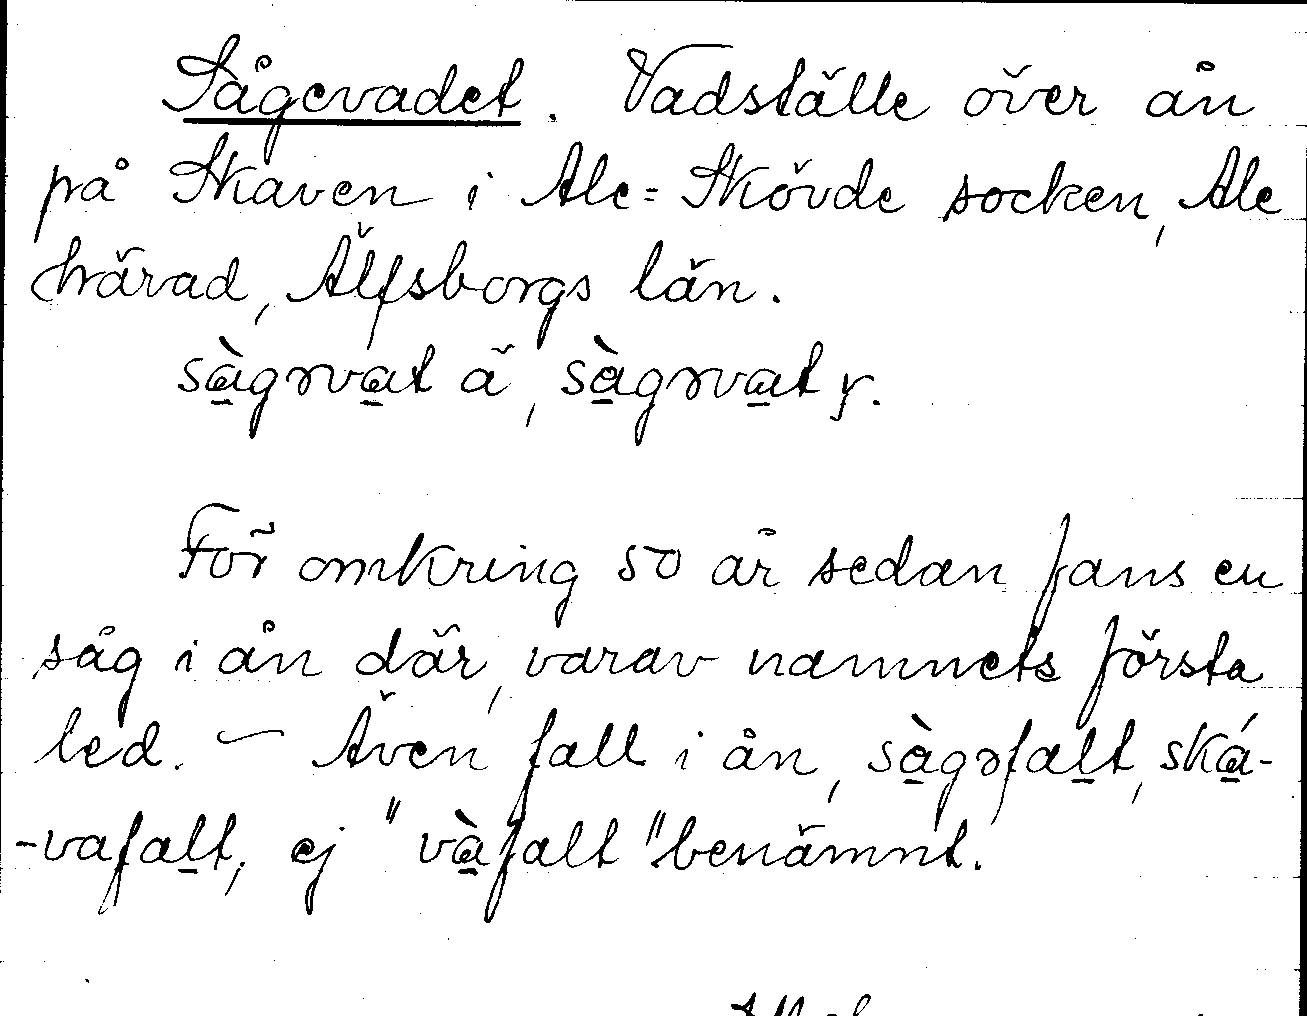 Sågevadet. Vadställe över ån
på Skaven i Ale=Skövde socken, Ale
härad, Älfsborgs län.
sàgɤvat ä, sàgɤvat y.
För omkring 50 år sedan fans en
såg i ån där, varav namnets första
led. – Även fall i ån, sàgɤfalt, ská-
-vafalt, ej "vàfalt" benämnt.